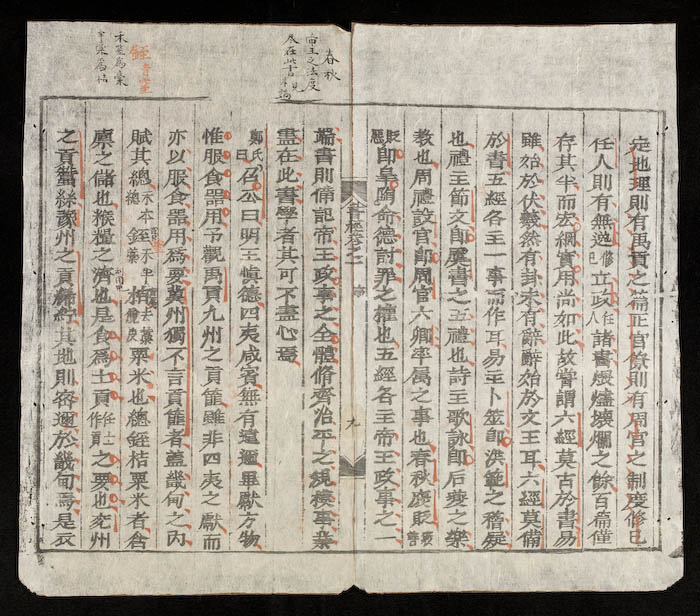 春秋
帝王之法度
銍音窒
禾莖爲藁
定地理則有禹貢之篇正官僚則有周官之制度修已
任人則有無逸修已立政任人諸書煨燼壞爛之餘百篇僅
存其半而宏綱實用尚如此故嘗謂六經莫古於書易
雖始於伏羲然有卦未有辭辭始於文王耳六經莫備
於書五經各主一事而作耳易主卜筮卽洪範之稽疑
也禮主節文卽虞書之五禮也詩主歌詠卽后夔之樂
教也周禮設官卽周官六卿率屬之事也春秋褒貶褒善
貶惡卽皐陶命德討罪之權也五經各主帝王政事之一
書經卷之一 序 九
端書則備記帝王政事之全體修齊治平之規模事業
盡在此書學者其可不盡心焉
鄭氏曰召公曰明王愼德四夷咸賓無有遠邇畢獻方物
惟服食器用予觀禹貢九州之貢篚雖非四夷之獻而
亦以服食器用爲要冀州獨不言貢篚者盖畿甸之内
賦其總禾本總銍禾半藁秸去藁粟米也總銍秸粟米者倉
廩之儲也糇糧之濟也是食爲土貢任土作貢之要也兖州
之貢蠶絲豫州之貢絺紵其地則密邇於畿甸焉是衣